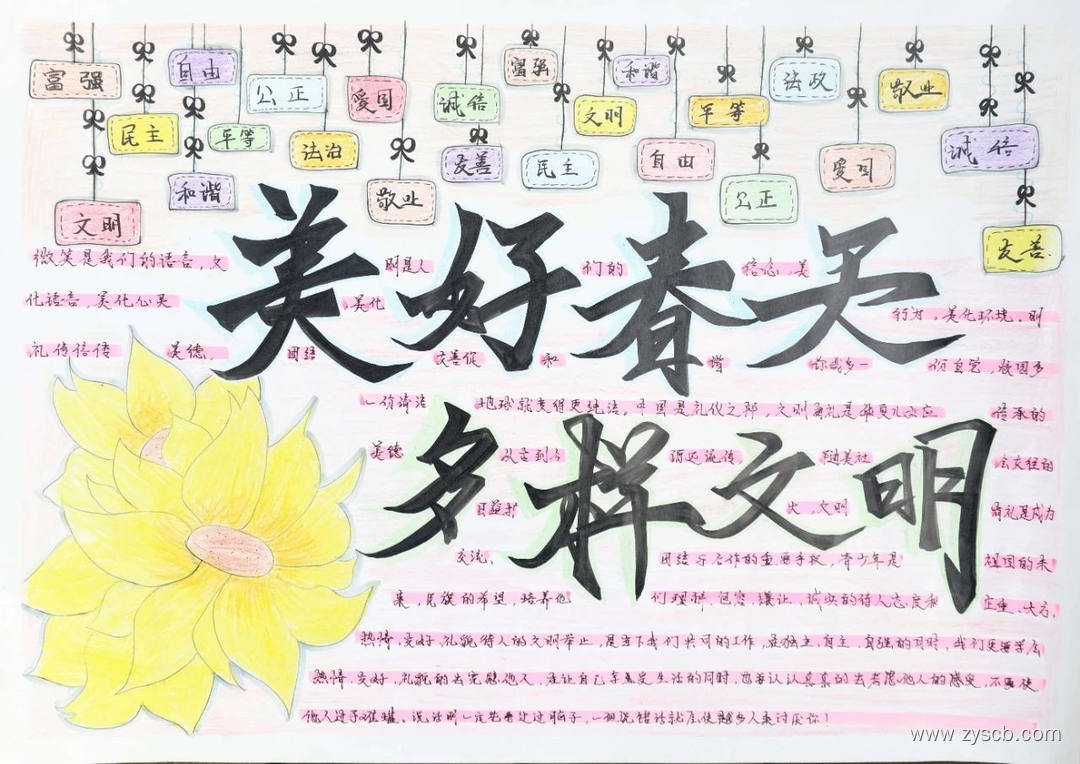 富强
自由
公正
爱国
诚信
富强
和谐
法政
敬业
民主
平等
法治
友善
文明
平等
诚信
文明
和谐
敬业
民主
自由
公正
爱国
友善
美好春天
多样文明
微笑是我们的语言，文明是人们的信念，美
化语言，美化心灵，美化行为，美化环境，明
礼传信传美德，团结友善促和谐
你我多一份自觉，
一份清洁 地球就变得更纯洁。中国是礼仪之邦，文明
传承的
美德 从古到今 源远流传 随着社
文明
交流、团结与合作的重要手段，青少年是祖国的未
来，民族的希望，培养他们理解，包容，谦让，诚实的待人态度和庄重、大方、
热情、友好、礼貌待人的文明举止，是当下我们共同的工作，在独立、自主、自强的同时，我们更要学会
热情、友好、礼貌的去
他人，
让自己
生活的同时，也要认认真真的去考虑他人的感受，不要使
你人过于难堪、说话前一定先要让过脑子，一
说错话就会使
多人来讨厌你！
www.zyscb.com